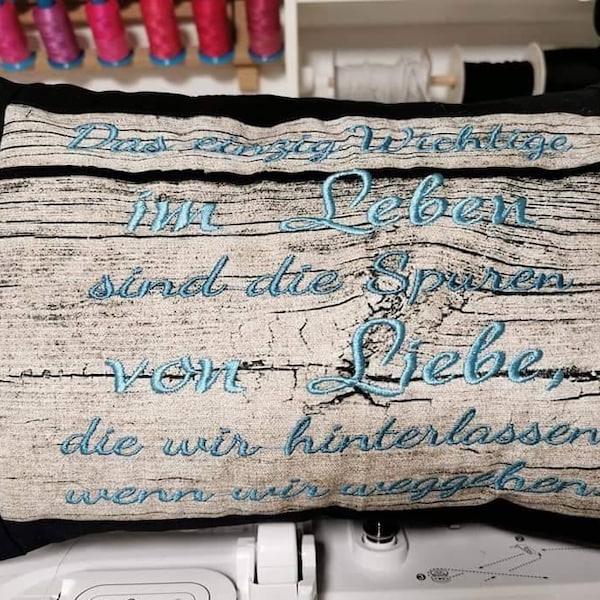 Das einzig Wichtige
im Leben
sind die Spuren
von Liebe,
die wir hinterlassen
wenn wir weggehen.